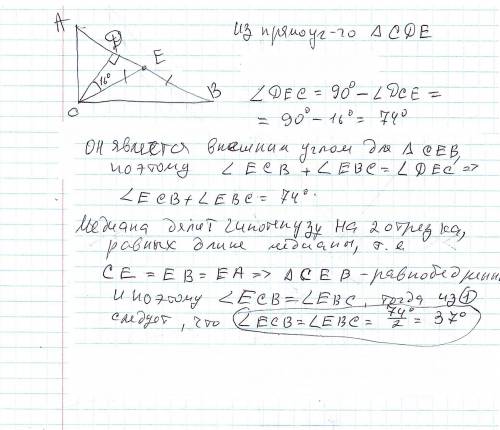 A
D
E
16°
C
B
Из прямоуг-го △CDE
∠DEC = 90° - ∠DCE =
= 90° - 16° = 74°
Он является внешним углом для △CEB,
поэтому ∠ECB + ∠EBC = ∠DEC ⇒
∠ECB + ∠EBC = 74°.
Медиана делит гипотенузу на 2 отрезка,
равных длине медианы, т.е
CE = EB = EA ⇒ △CEB - равнобедрен
и поэтому ∠ECB = ∠EBC, тогда из 1
следует, что ∠ECB = ∠EBC = 74°/2 = 37°